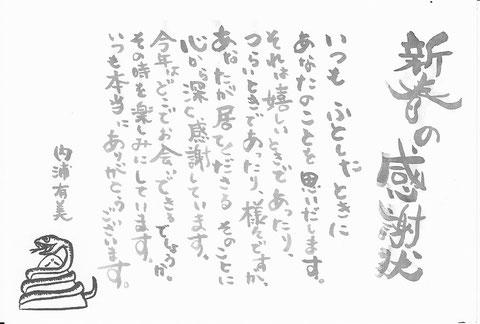 新春の感謝状
いつも ふとしたときに
あなたのことを思いだします。
それは嬉しいときであったり、
つらいときであったり、様々ですが、
あなたが居てくださる そのことに
心から深く感謝しています。
今年はどこでお会いできるでしょうか。
その時を楽しみにしています。
いつも本当にありがとうございます。
内浦有美